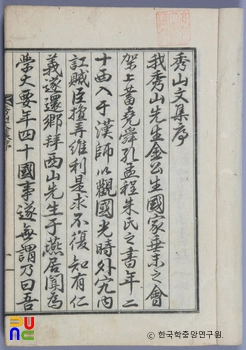 秀山文集序
我秀山先生金公生國家垂末之會
架上蓄堯舜孔孟程朱氏之書年二
十西入于漢師以觀國光時外宄內
訌賊臣擅弄維利是求不復知有仁
義遂還鄉拜西山先生于燕居聞為
榮丈要年四十國事遂每謂乃曰吾
한국학중앙연구원